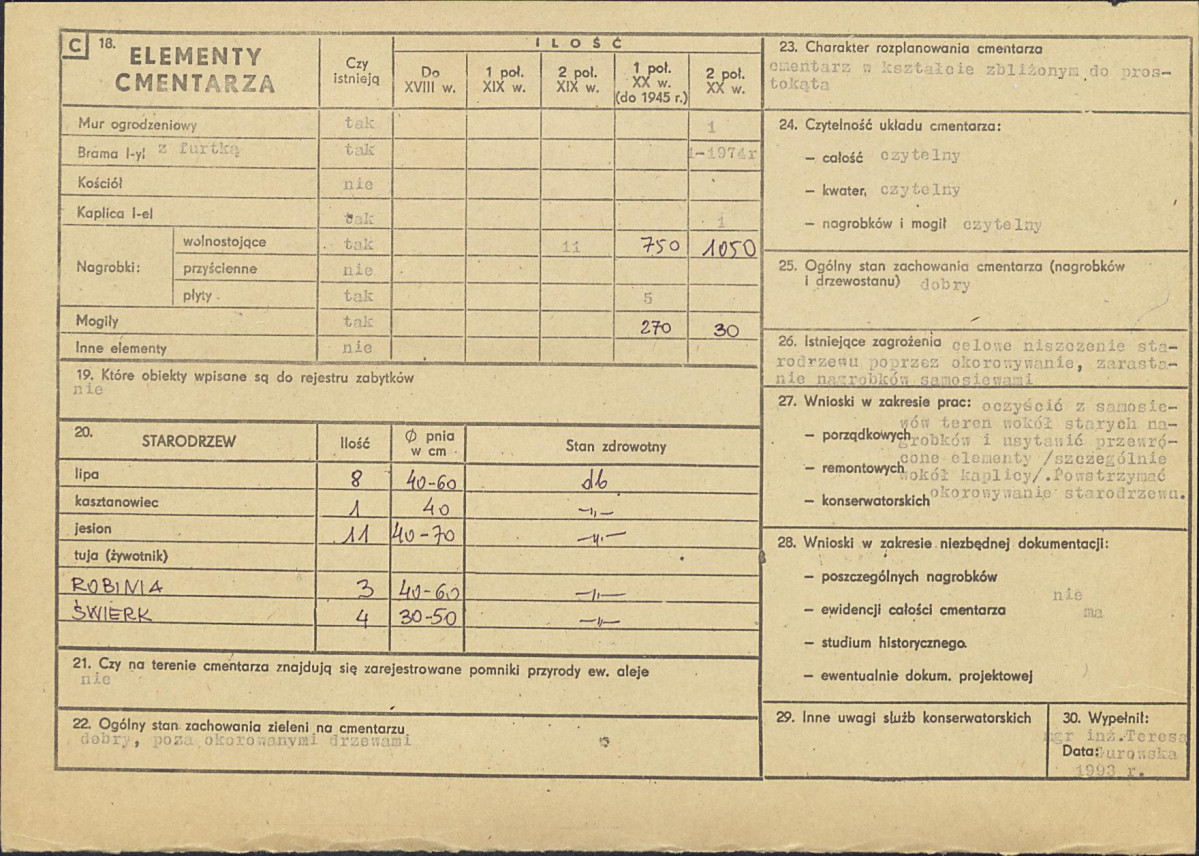 C 18. ELEMENTY CMENTARZA
Czy istnieją
ILOŚĆ
Do XVIII w.
1 poł. XIX w.
2 poł. XIX w.
1 poł. XX w. (do 1945 r.)
2 poł. XX w.
Mur ogrodzeniowy tak 1
Brama I-yl z furtką tak 1-1974r
Kościół nie
Kaplica I-el tak 1
Nagrobki: wolnostojące tak 11 750 1050
przyścienne nie
płyty tak 5
Mogiły tak 270 30
Inne elementy nie
19. Które obiekty wpisane są do rejestru zabytków
nie
20. STARODRZEW Ilość Ø pnia w cm Stan zdrowotny
lipa 8 40-60 db
kasztanowiec 1 40 -„-
jesion 11 40-70 -„-
tuja (żywotnik)
ROBINIA 3 40-60 -„-
ŚWIERK 4 30-50 -„-
21. Czy na terenie cmentarza znajdują się zarejestrowane pomniki przyrody ew. aleje
nie
22. Ogólny stan zachowania zieleni na cmentarzu
dobry, poza okorowanymi drzewami
23. Charakter rozplanowania cmentarza
cmentarz w kształcie zbliżonym do pros-
tokąta
24. Czytelność układu cmentarza:
– całość czytelny
– kwater, czytelny
– nagrobków i mogił czytelny
25. Ogólny stan zachowania cmentarza (nagrobków
i drzewostanu) dobry
26. Istniejące zagrożenia celowe niszczenie sta-
rodrzewu poprzez okorowywanie, zarasta-
nie nagrobków samosiewami
27. Wnioski w zakresie prac: oczyścić z samosie-
wów teren wokół starych na-
– porządkowych grobków i usytawić przewró-
cone elementy /szczególnie
– remontowych wokół kaplicy/.Powstrzymać
– konserwatorskich okorowywanie starodrzewu.
28. Wnioski w zakresie niezbędnej dokumentacji:
– poszczególnych nagrobków
nie
– ewidencji całości cmentarza ma
– studium historycznego
– ewentualnie dokum. projektowej
29. Inne uwagi służb konserwatorskich
30. Wypełnił:
mgr inż.Teresa
Data:
1993 r.